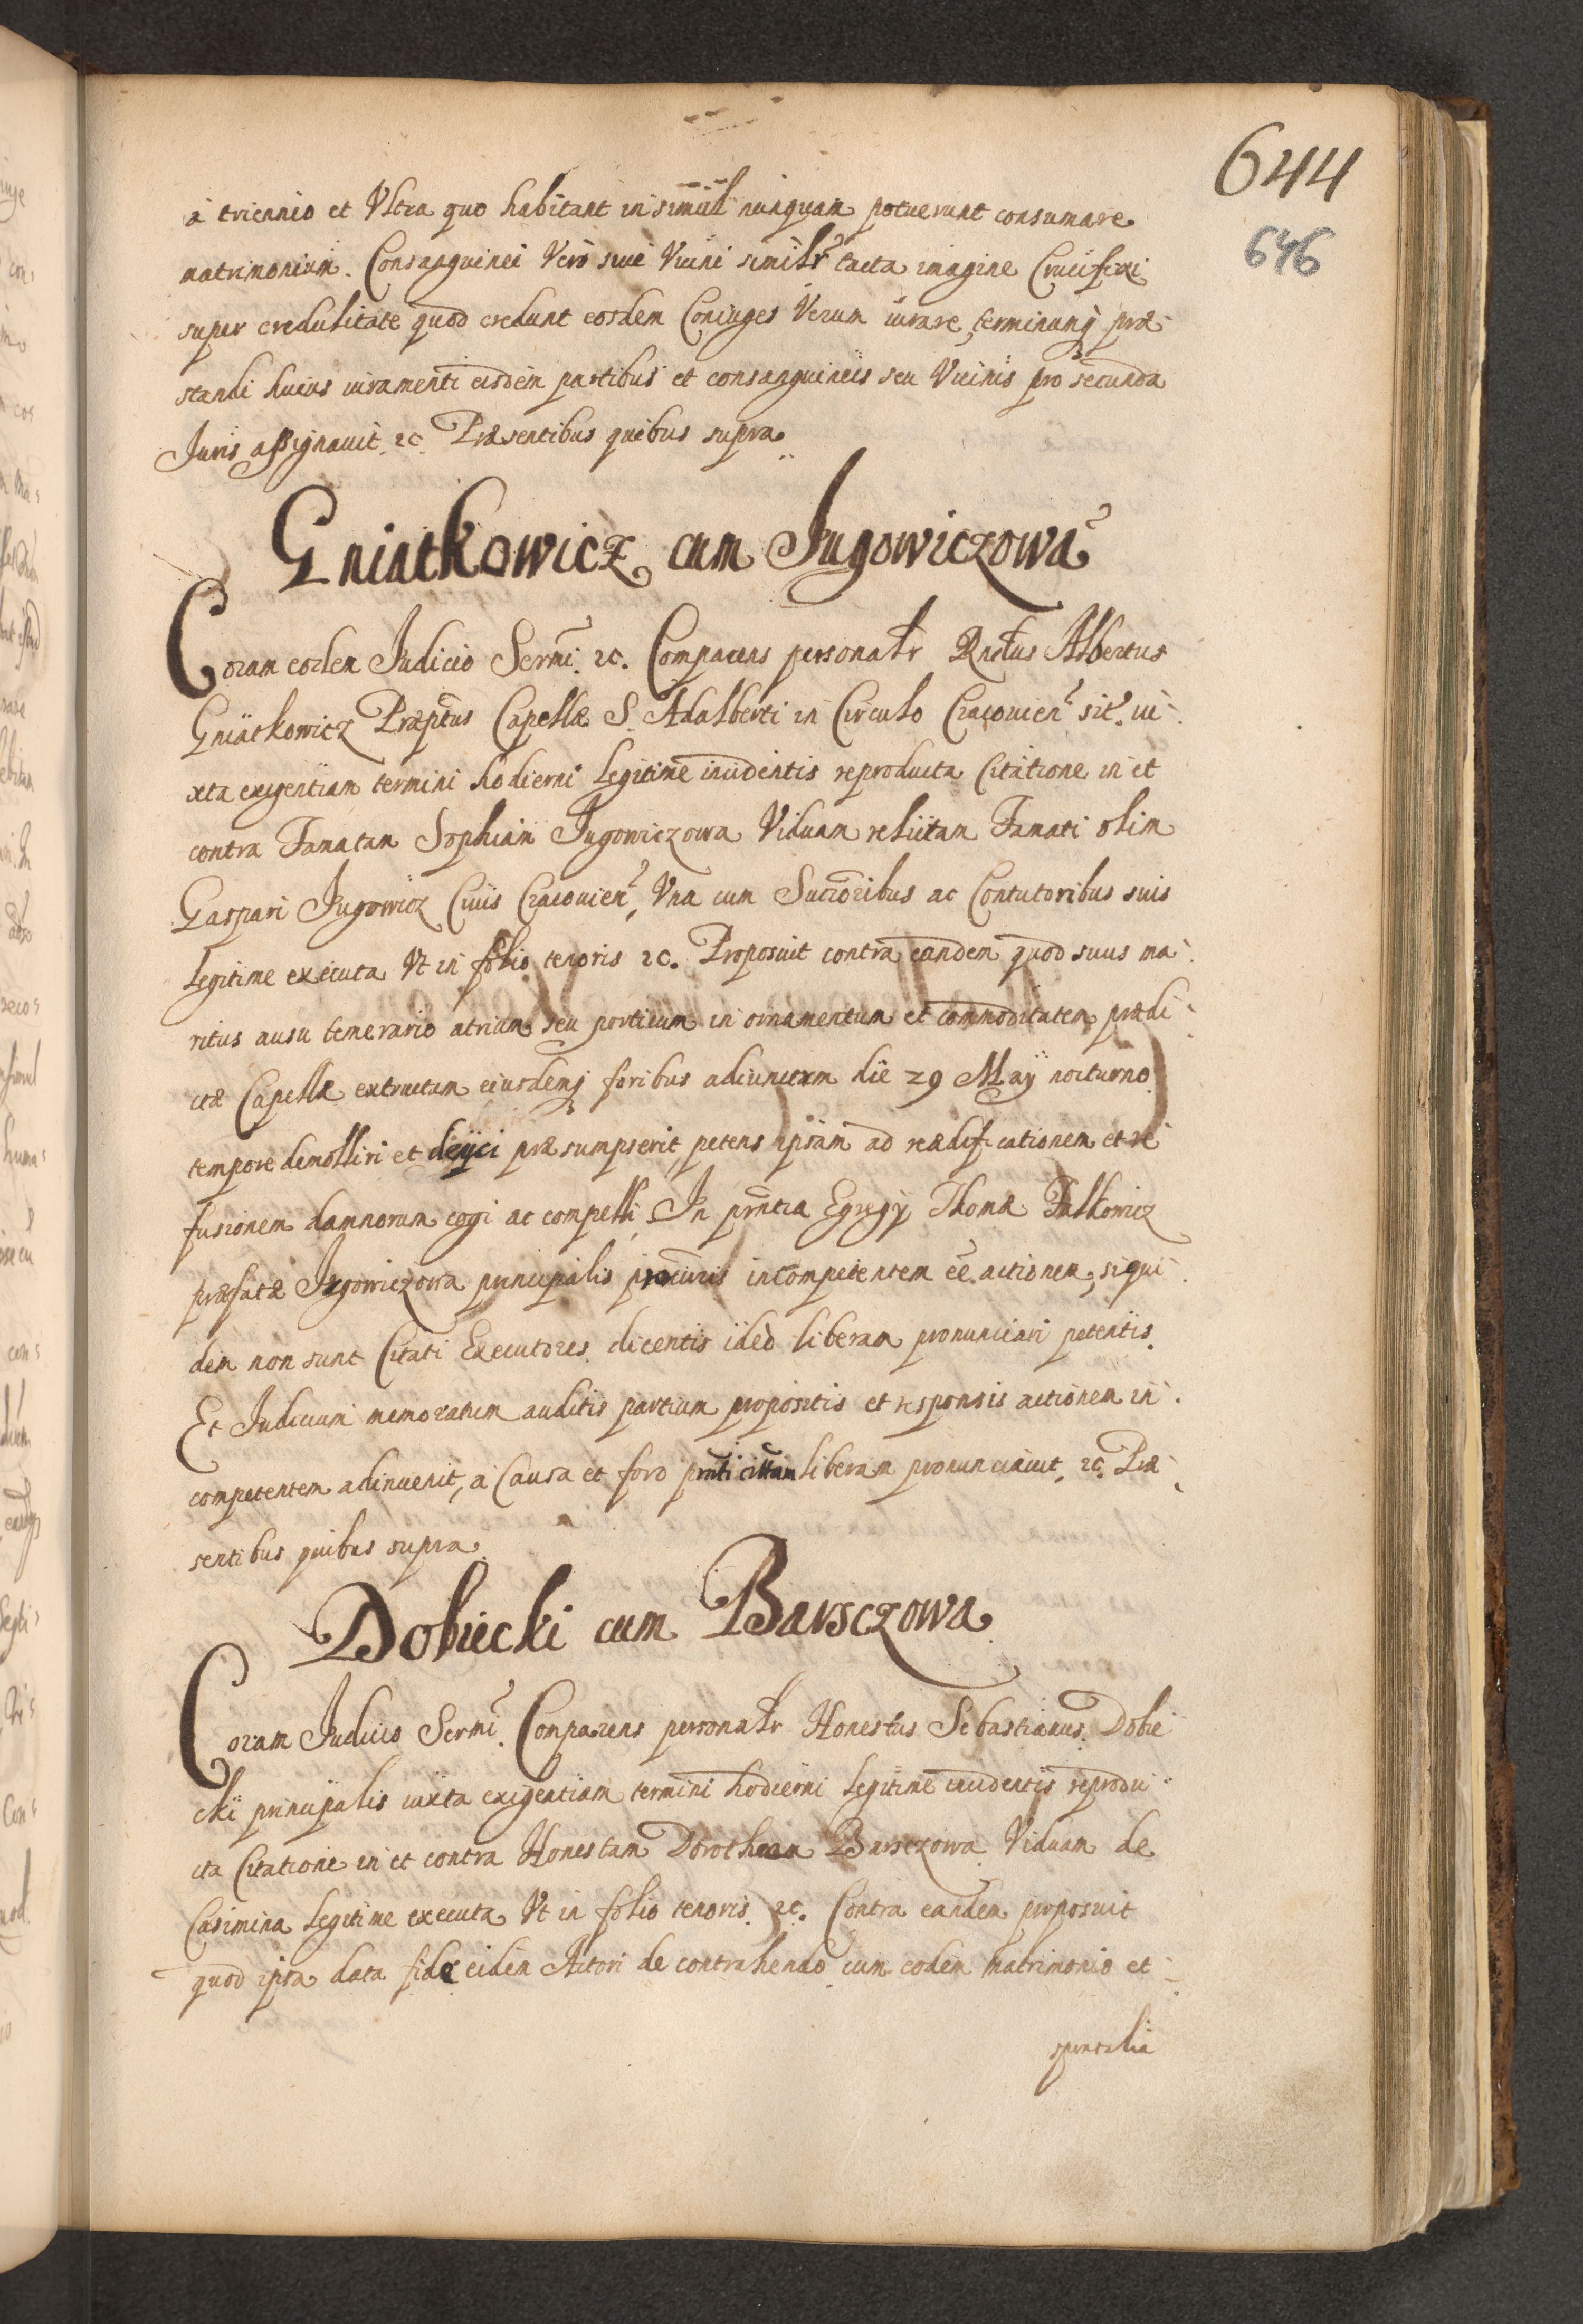 644
646
à triennio et Vltra quo habitant in simùl nunquam potuerunt consumare
matrimonium. Consanguinei Verò siue Vicini similr tacta imagine Crucifixi
super credulitate quod credunt eosdem Coniuges Verum iurare, terminumq præ-
standi huius iuramenti eisdem partibus et consanguineis seu Vicinis pro secunda
Iuris assignauit. 2c. Præsentibus quibus supra.
Gniatkowicz cum Jugowiczowa
Coram eodem Judicio Sermi. 2c. Comparens personalr Rndus Albertus
Gniatkowicz Præptus Capellæ S. Adalberti in Circulo Cracouien sit. iu-
xta exigentiam termini hodierni legitime incidentis reproducta Citatione in et
contra Famatam Sophiam Jugowiczowa Viduam relictam Famati olim
Gaspari Jugowicz Ciuis Cracouien, Vna cum Succoribus ac Contutoribus suis
legitime executa Vt in folio tenoris 2c. Proposuit contra eandem quod suus ma-
ritus ausu temerario atrium seu porticum in ornamentum et commoditatem prædi-
ctæ Capellæ extructam eiusdemq foribus adiunctam die 29 Maij nocturno
tempore demolliri et deijci præsumpserit, petens ipsam ad reædificationem et re-
fusionem damnorum cogi ac compelli. In pnntia Egregij Thomæ Palkowicz
præfatæ Jugowiczowa principalis procuris incompetentem ee. actionem, siqui-
dem non sunt Citati Executores dicentis ideò liberam pronunciari petentis.
Et Judicium memoratum auditis partium propositis et responsis actionem in-
competentem adinuenit, à Causa et foro pnti cittam liberam pronunciauit, 2c. Præ-
sentibus quibus supra.
Dobiecki cum Barsczowa
Coram Judicio Sermi. Comparens personalr Honestus Sebastianus Dobie-
cki principalis iuxta exigentiam termini hodierni legitime incidentis reprodu-
cta Citatione in et contra Honestam Dorotheam Barsczowa Viduam de
Casimiria legitime executa Vt in folio tenoris. 2c. Contra eandem proposuit
quod ipsa data fide eidem Actori de contrahendo cum eodem matrimonio et